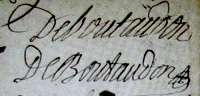 Deboutaudon
DeBoutaudon